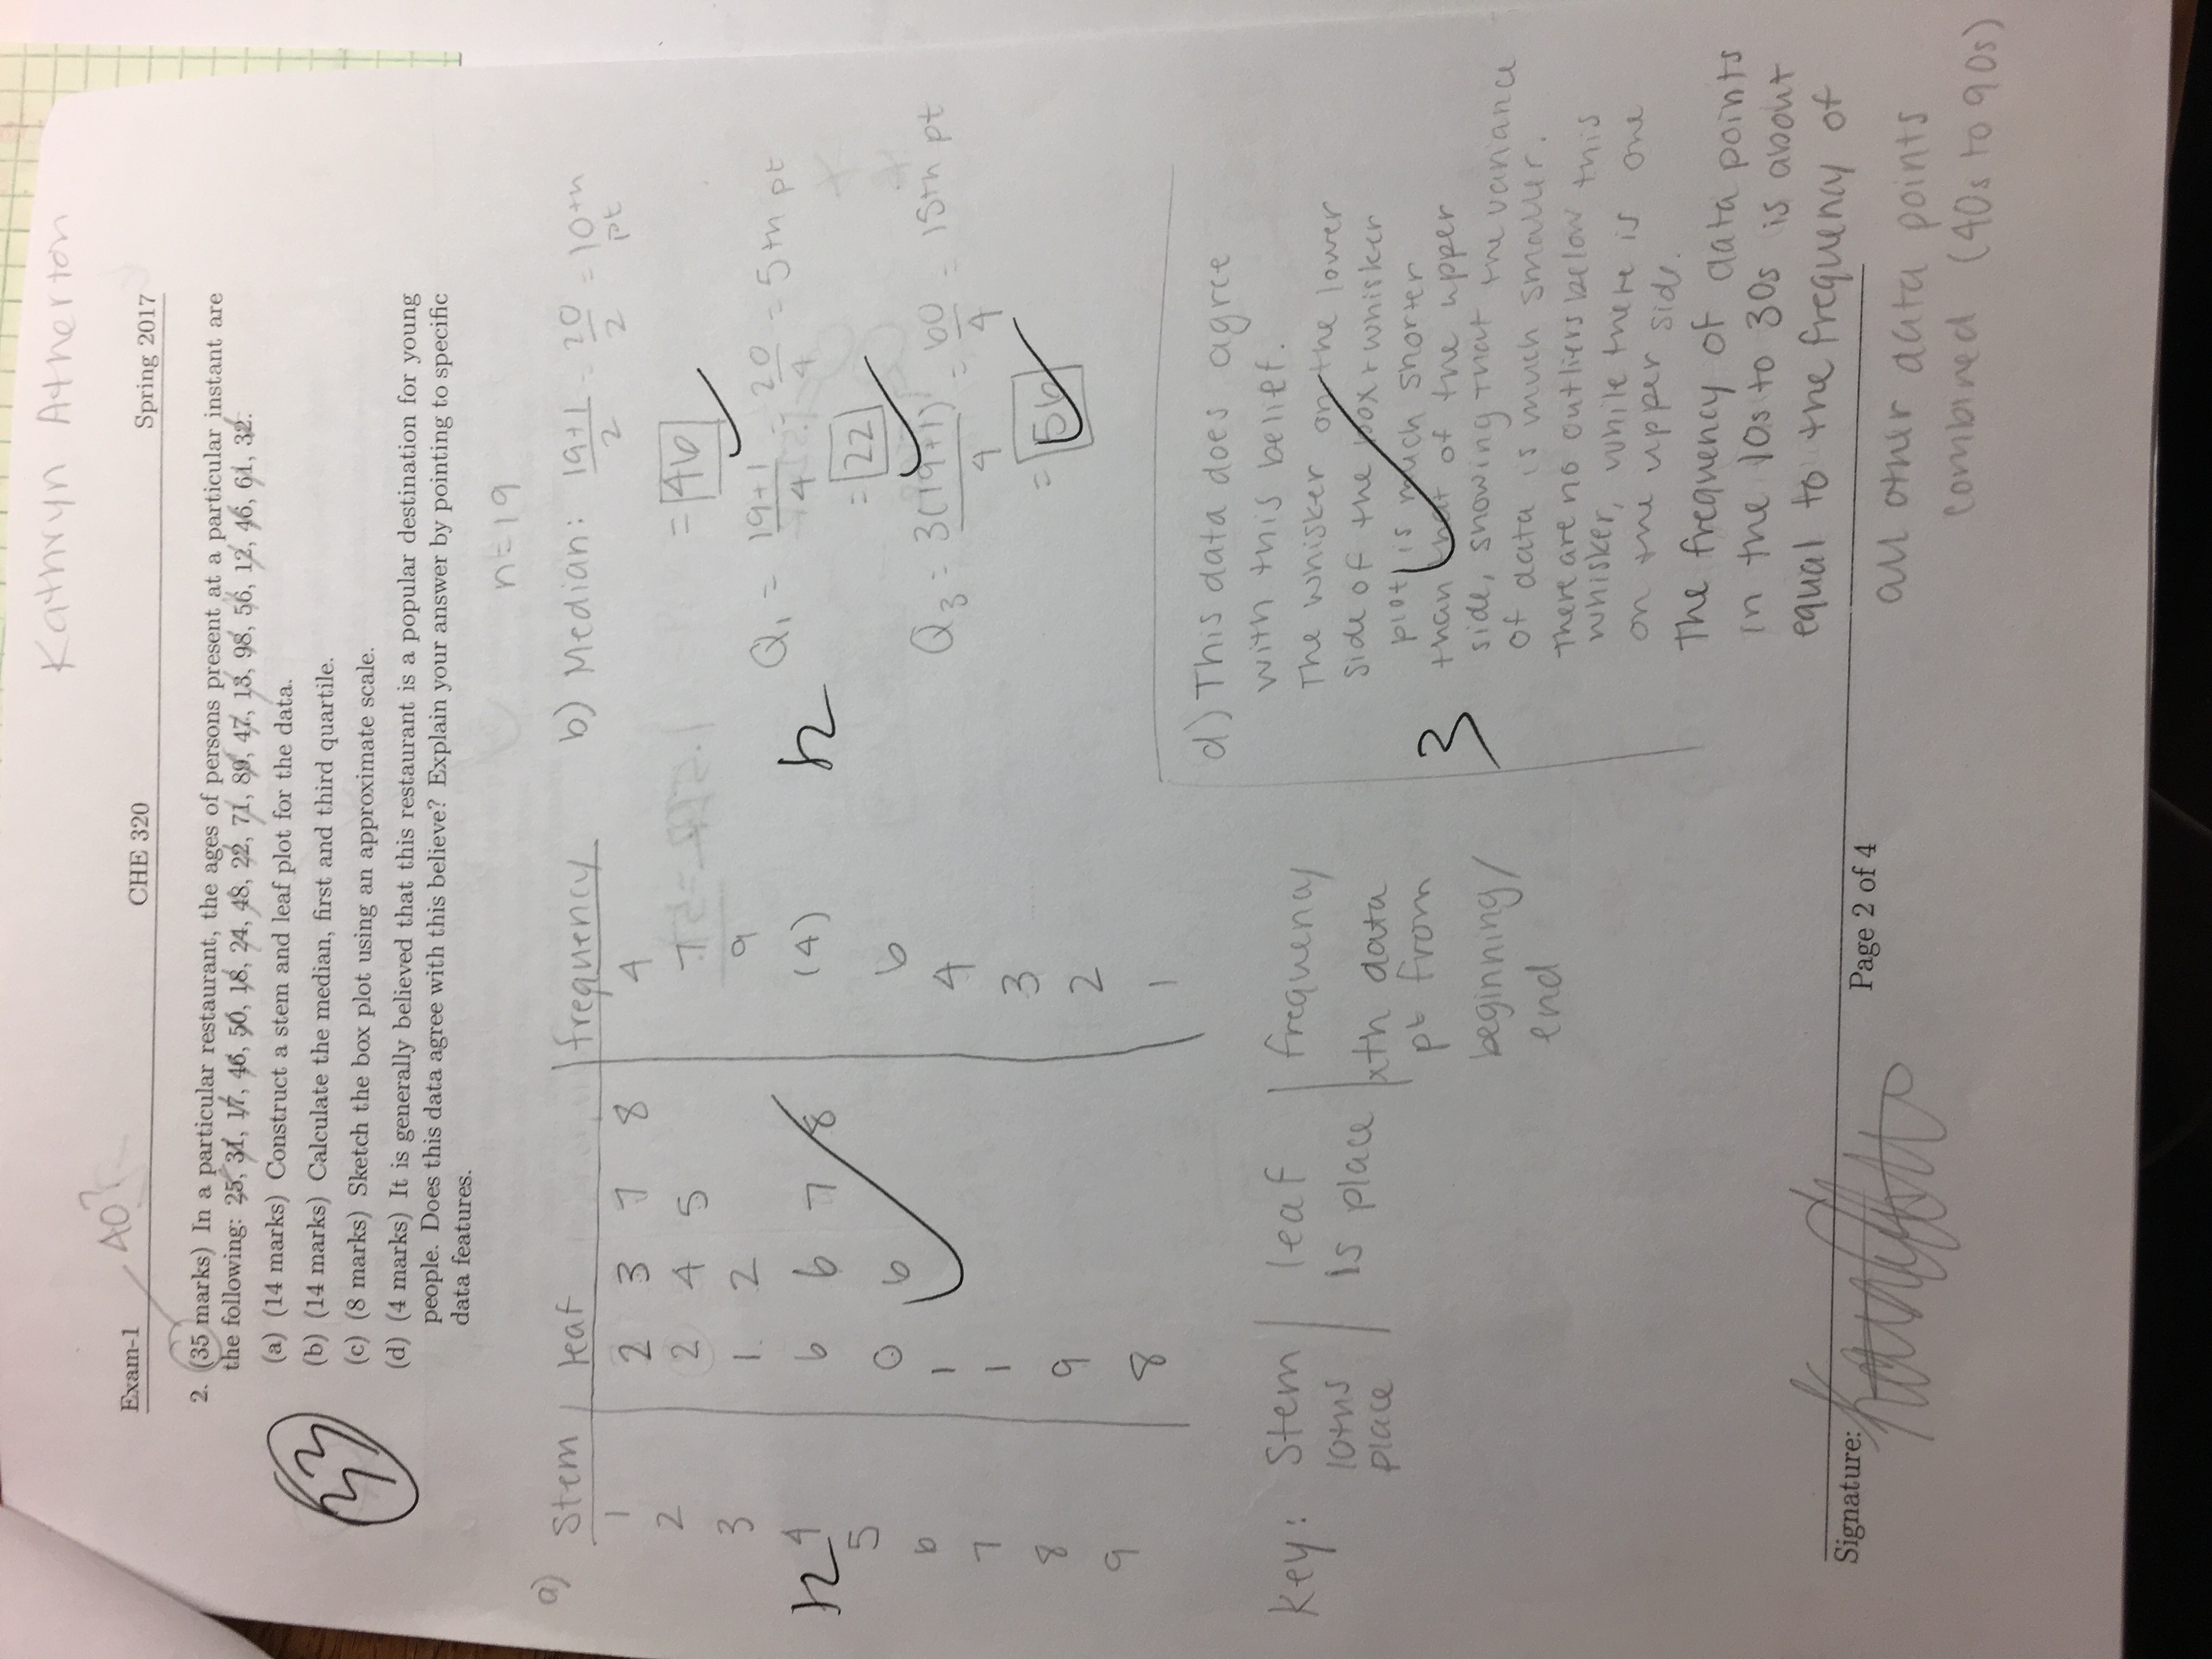 Kathryn Atherton
40?
Exam-1 CHE 320 Spring 2017
2. (35 marks) In a particular restaurant, the ages of persons present at a particular instant are
the following: 25, 31, 17, 46, 50, 18, 24, 48, 22, 71, 89, 47, 13, 98, 56, 12, 46, 61, 32.
(a) (14 marks) Construct a stem and leaf plot for the data.
33
(b) (14 marks) Calculate the median, first and third quartile.
(c) (8 marks) Sketch the box plot using an approximate scale.
(d) (4 marks) It is generally believed that this restaurant is a popular destination for young
people. Does this data agree with this believe? Explain your answer by pointing to specific
data features.
n=19
a) Stem leaf frequency
1 2 3 7 8 4
2 2 4 5 7
3 1 2 9
4 6 6 7 8 (4)
5 0 6 6
6 1 4
7 1 3
8 9 2
9 8 1
12
key: Stem leaf frequency
10ths place
1s place
xth data
pt from
beginning/
end
b) Median: 19+1/2 = 20/2 = 10th pt
= 46
Q1 = 19+1/4 = 20/4 = 5th pt
12
= 22
Q3 = 3(19+1)/4 = 60/4 = 15th pt
= 56
d) This data does agree
with this belief.
The whisker on the lower
side of the box + whisker
plot is much shorter
than that of the upper
3
side, showing that the variance
of data is much smaller.
There are no outliers below this
whisker, while there is one
on the upper side.
The frequency of data points
in the 10s to 30s is about
equal to the frequency of
all other data points
combined (40s to 90s)
Signature: Page 2 of 4